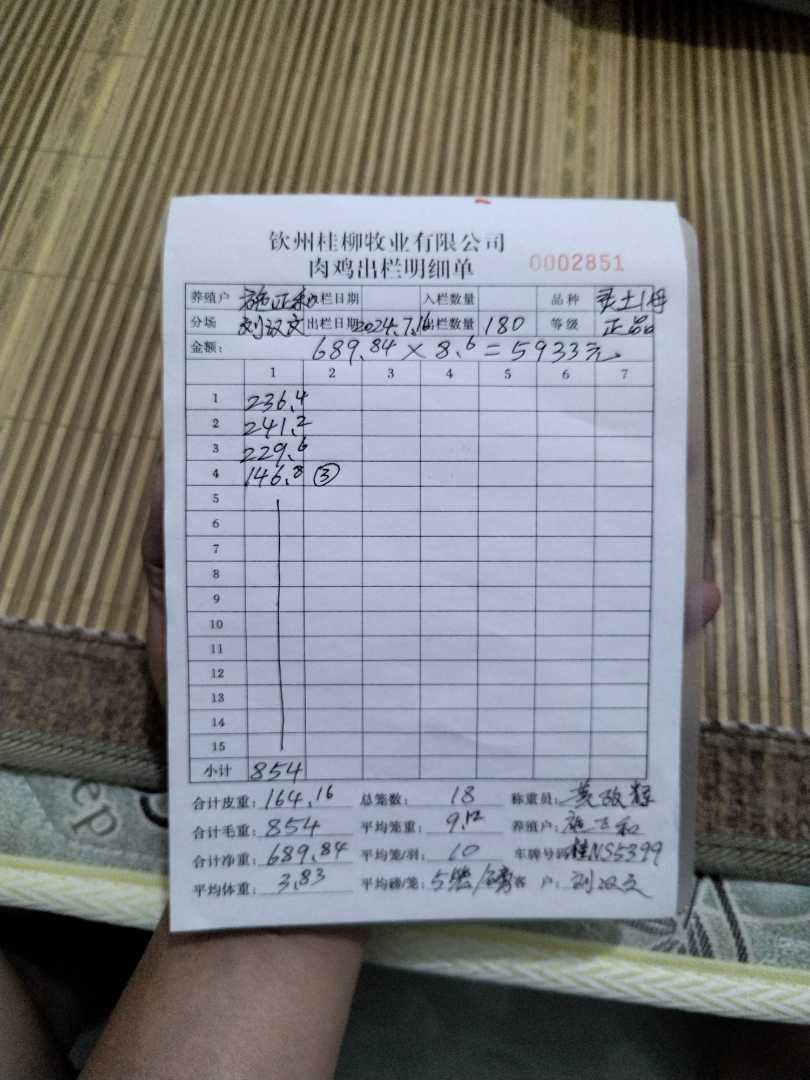 钦州桂柳牧业有限公司
肉鸡出栏明细单 0002851
养殖户 施正和 入栏日期 入栏数量 品种 灵土1母
分场 刘汉文 出栏日期 2024.7.16 出栏数量 180 等级 正品
金额: 689.84 × 8.6 = 5933元
1 2 3 4 5 6 7
1 236.4
2 241.2
3 229.6
4 146.8 ③
5
6
7
8
9
10
11
12
13
14
15
小计 854
合计皮重: 164.16 总笼数: 18 称重员: 黄
合计毛重: 854 平均笼重: 9.12 养殖户: 施正和
合计净重: 689.84 平均笼/羽: 10 车牌号码: 桂NS5399
平均体重: 3.83 平均磅/笼: 5笼/磅 客户: 刘汉文
ep